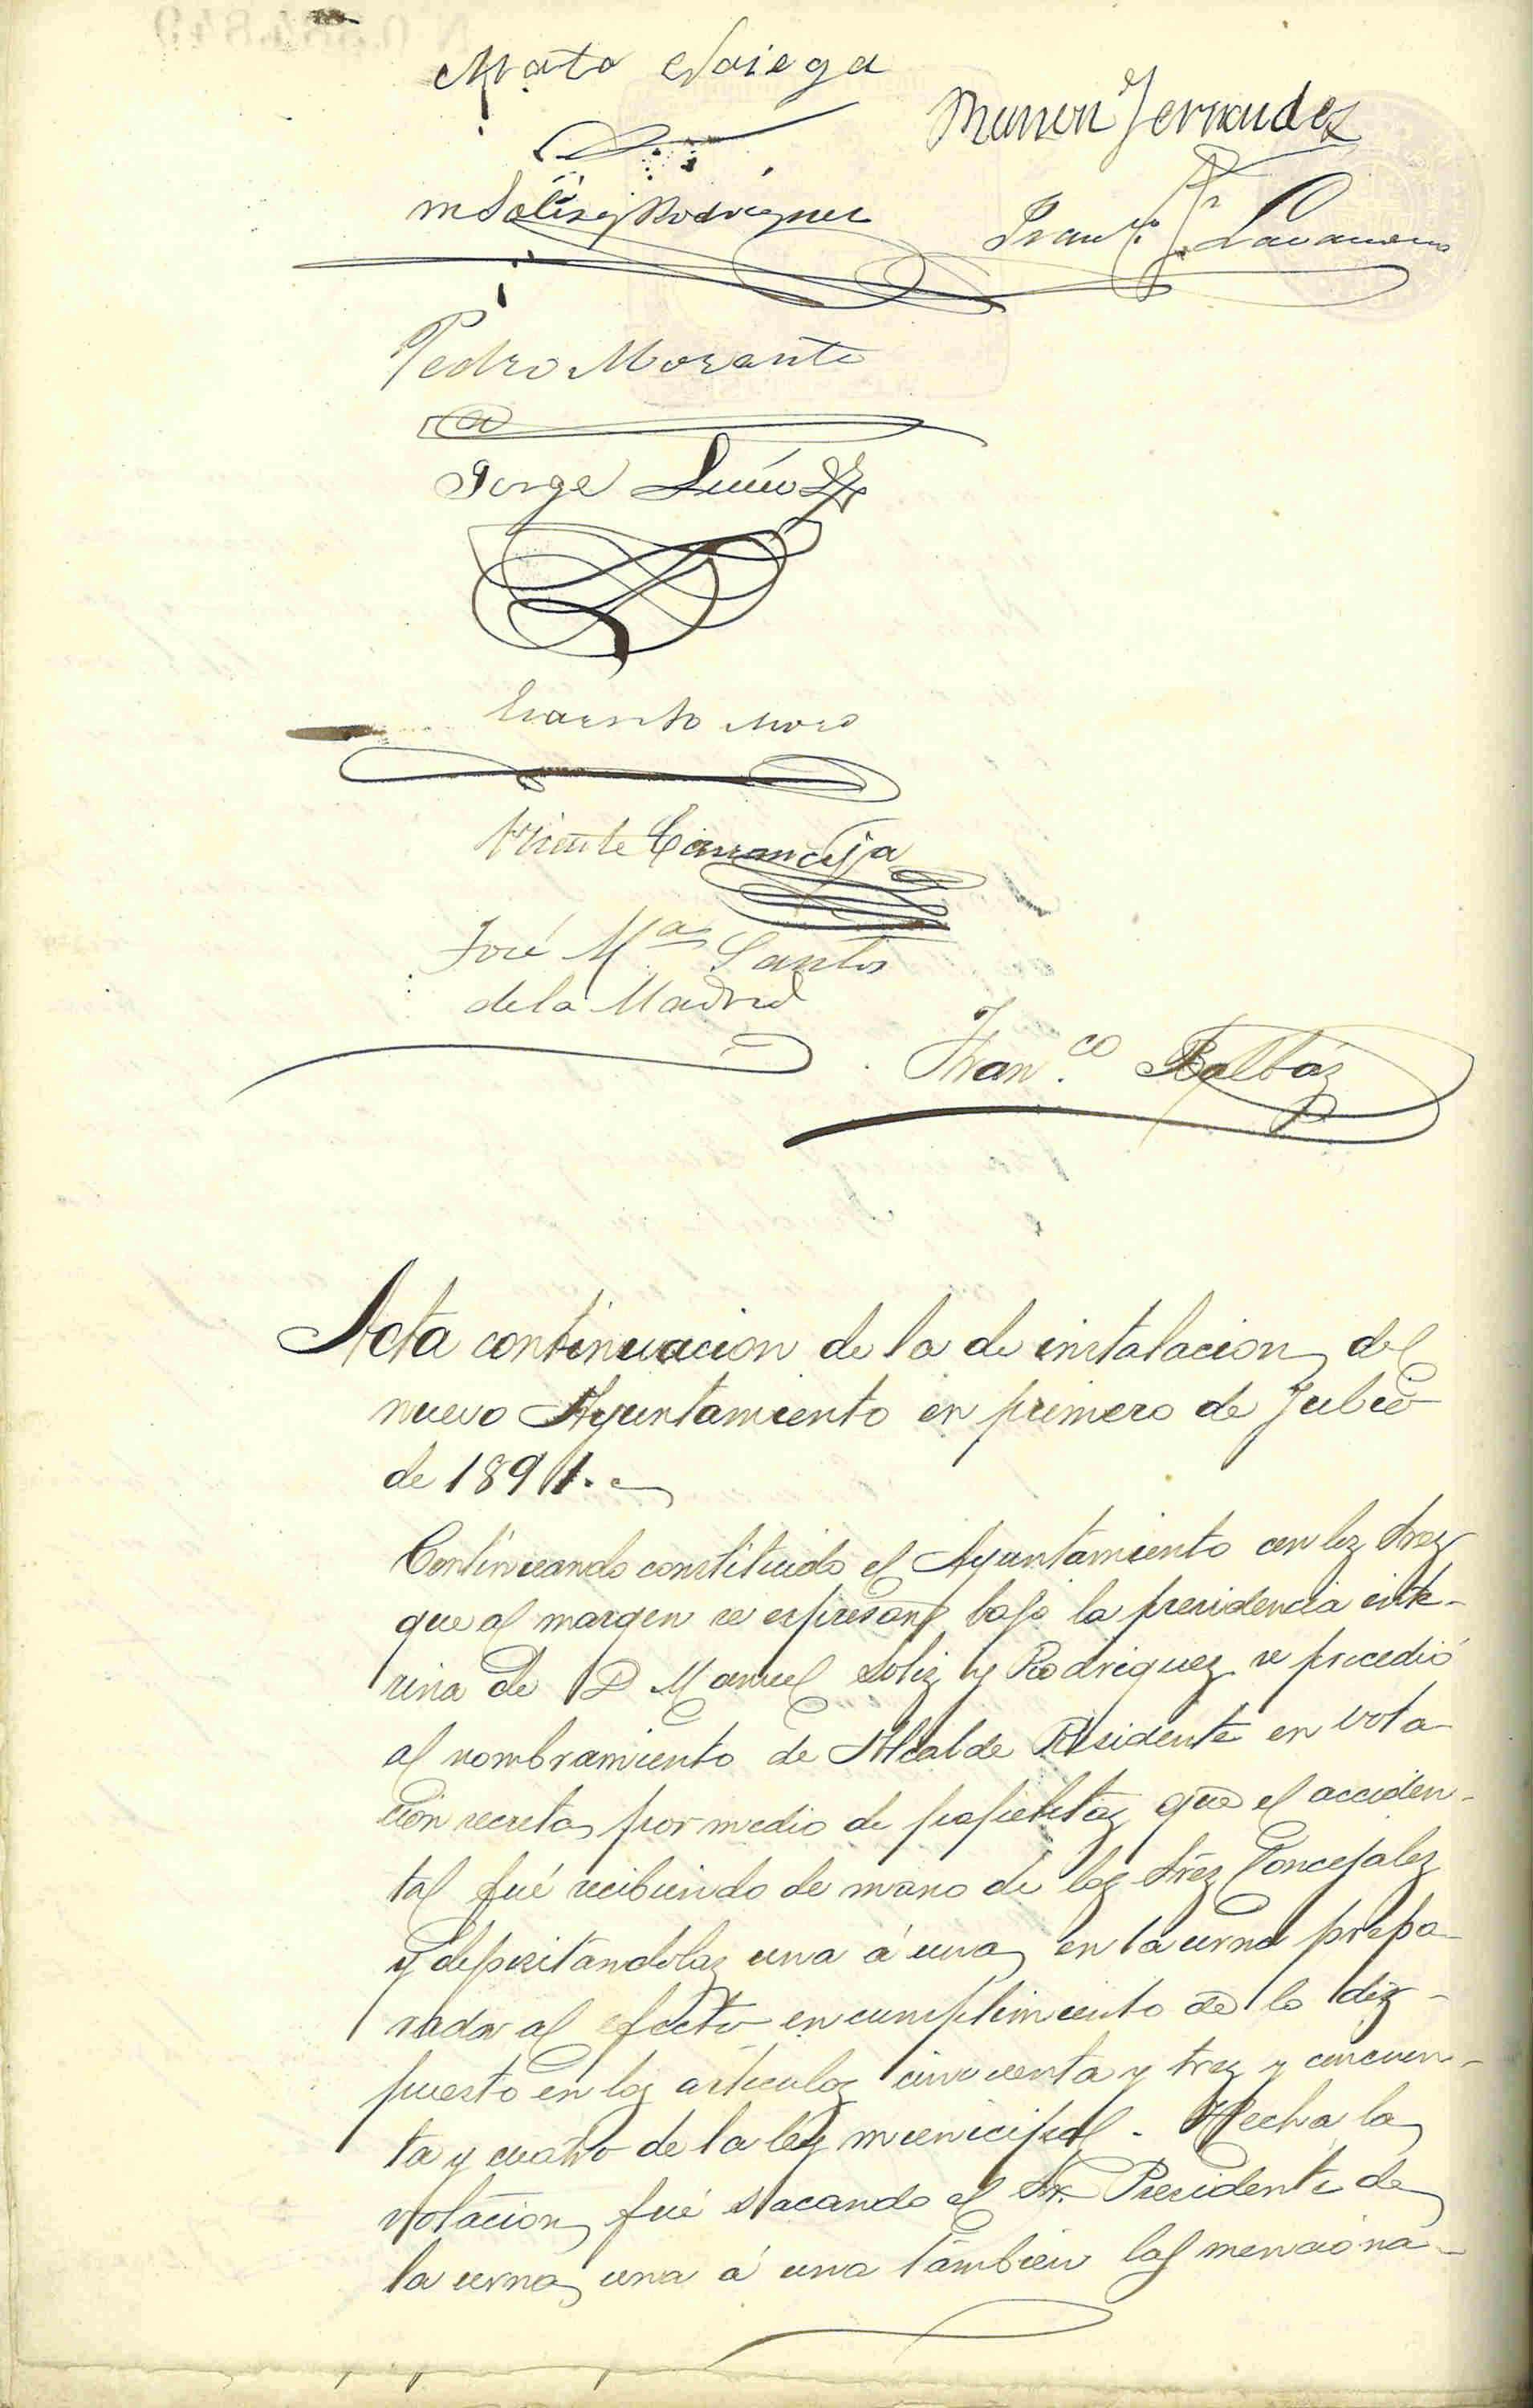 Mato Noriega
Munon Fernandez
M Soliz y Rodriguez
Fran.co
Pedro Morante
Jorge
Evaristo Moro
Vicente Carranceja
José Mª Santos
de la Madrid
Fran.co Balbás
Acta continuacion de la de instalacion del
nuevo Ayuntamiento en primero de Julio
de 1891.
Continuando constituido el Ayuntamiento con loz Srez
que al margen se espresan, bajo la presidencia inte-
rina de D Manuel Soliz y Rodriguez se procedió
al nombramiento de Alcalde Presidente en vota-
ción secreta, por medio de papeletaz que el acciden-
tal fué recibiendo de mano de loz Srez Concejalez
y depozitandolaz una á una en la urna prepa-
rada al efecto en cumplimiento de lo diz-
puesto en loz articuloz cincuenta y trez y cincuen-
ta y cuatro de la ley municipal. Hecha la
votacion, fué sacando el Sr. Presidente de
la urna, una á una tambien las menciona-